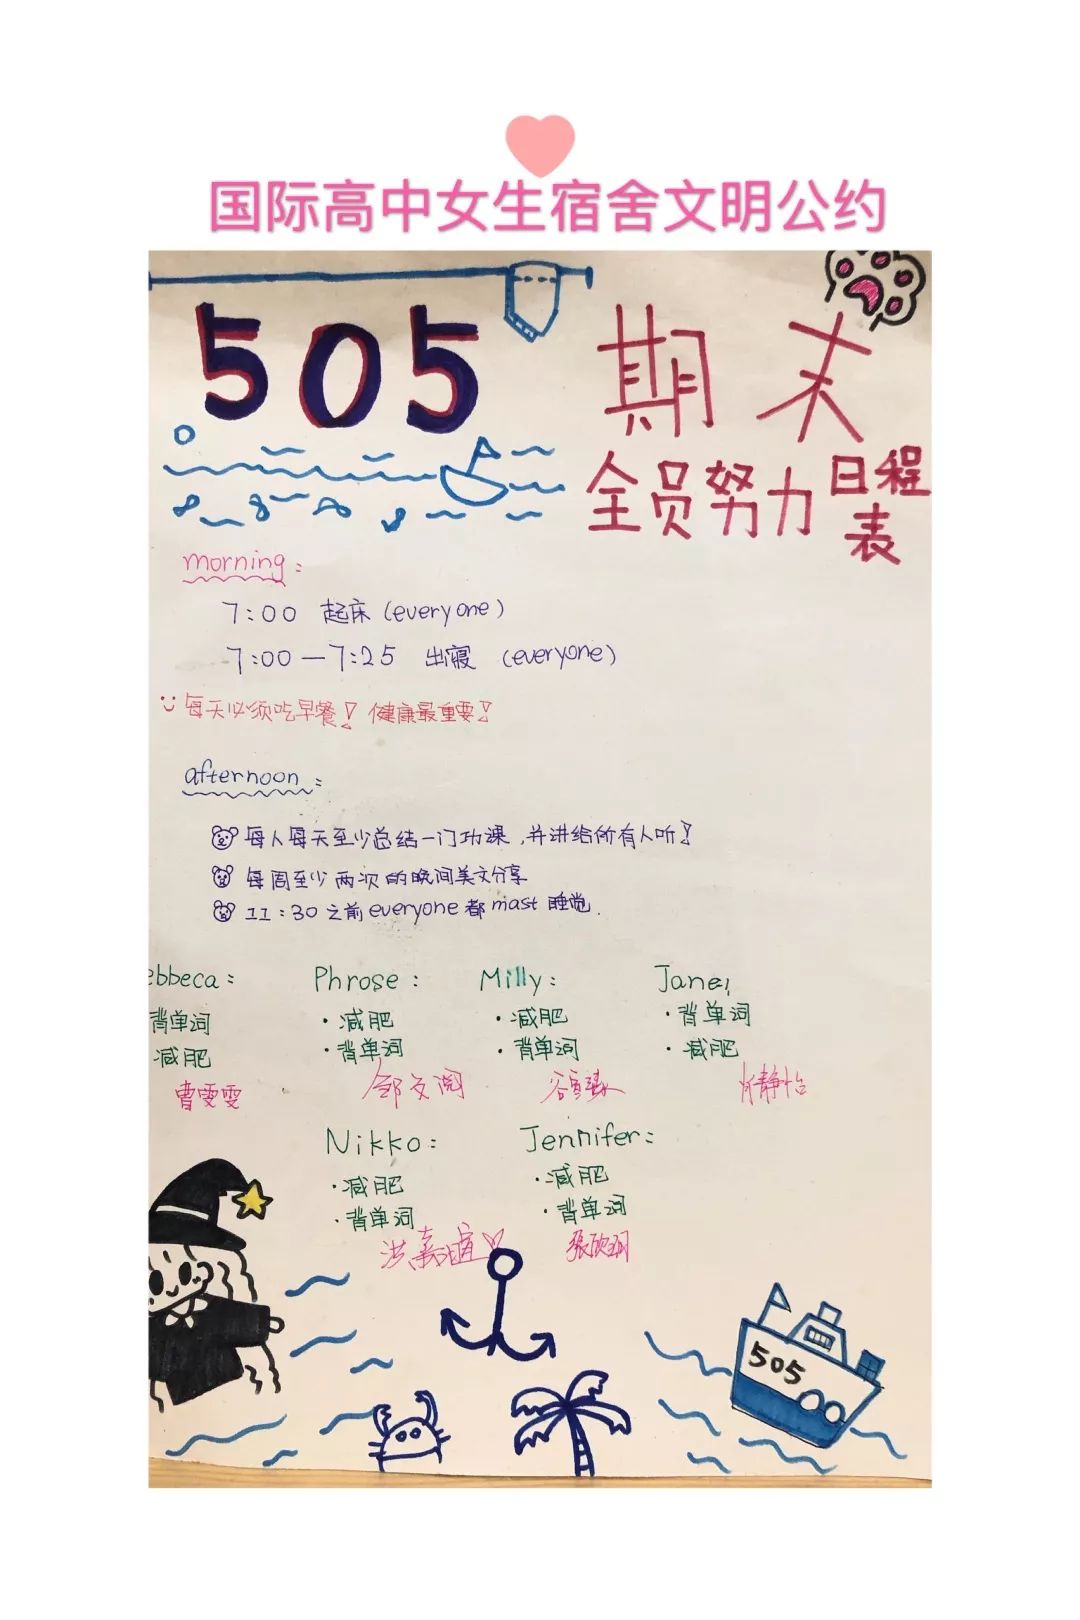 国际高中女生宿舍文明公约
505
期末
全员努力日程表
morning:
7:00 起床 (everyone)
7:00—7:25 出寝 (everyone)
每天必须吃早餐! 健康最重要!
afternoon:
每人每天至少总结一门功课,并讲给所有人听!
每周至少两次的晚间美文分享
11:30之前everyone都mast睡觉.
ebbeca:
背单词
减肥
曹雯雯
Phrose:
·减肥
·背单词
邹文阅
Milly:
·减肥
·背单词
Jane:
·背单词
·减肥
静怡
Nikko:
·减肥
·背单词
洪嘉谊
Jennifer:
·减肥
·背单词
張欣玥
505